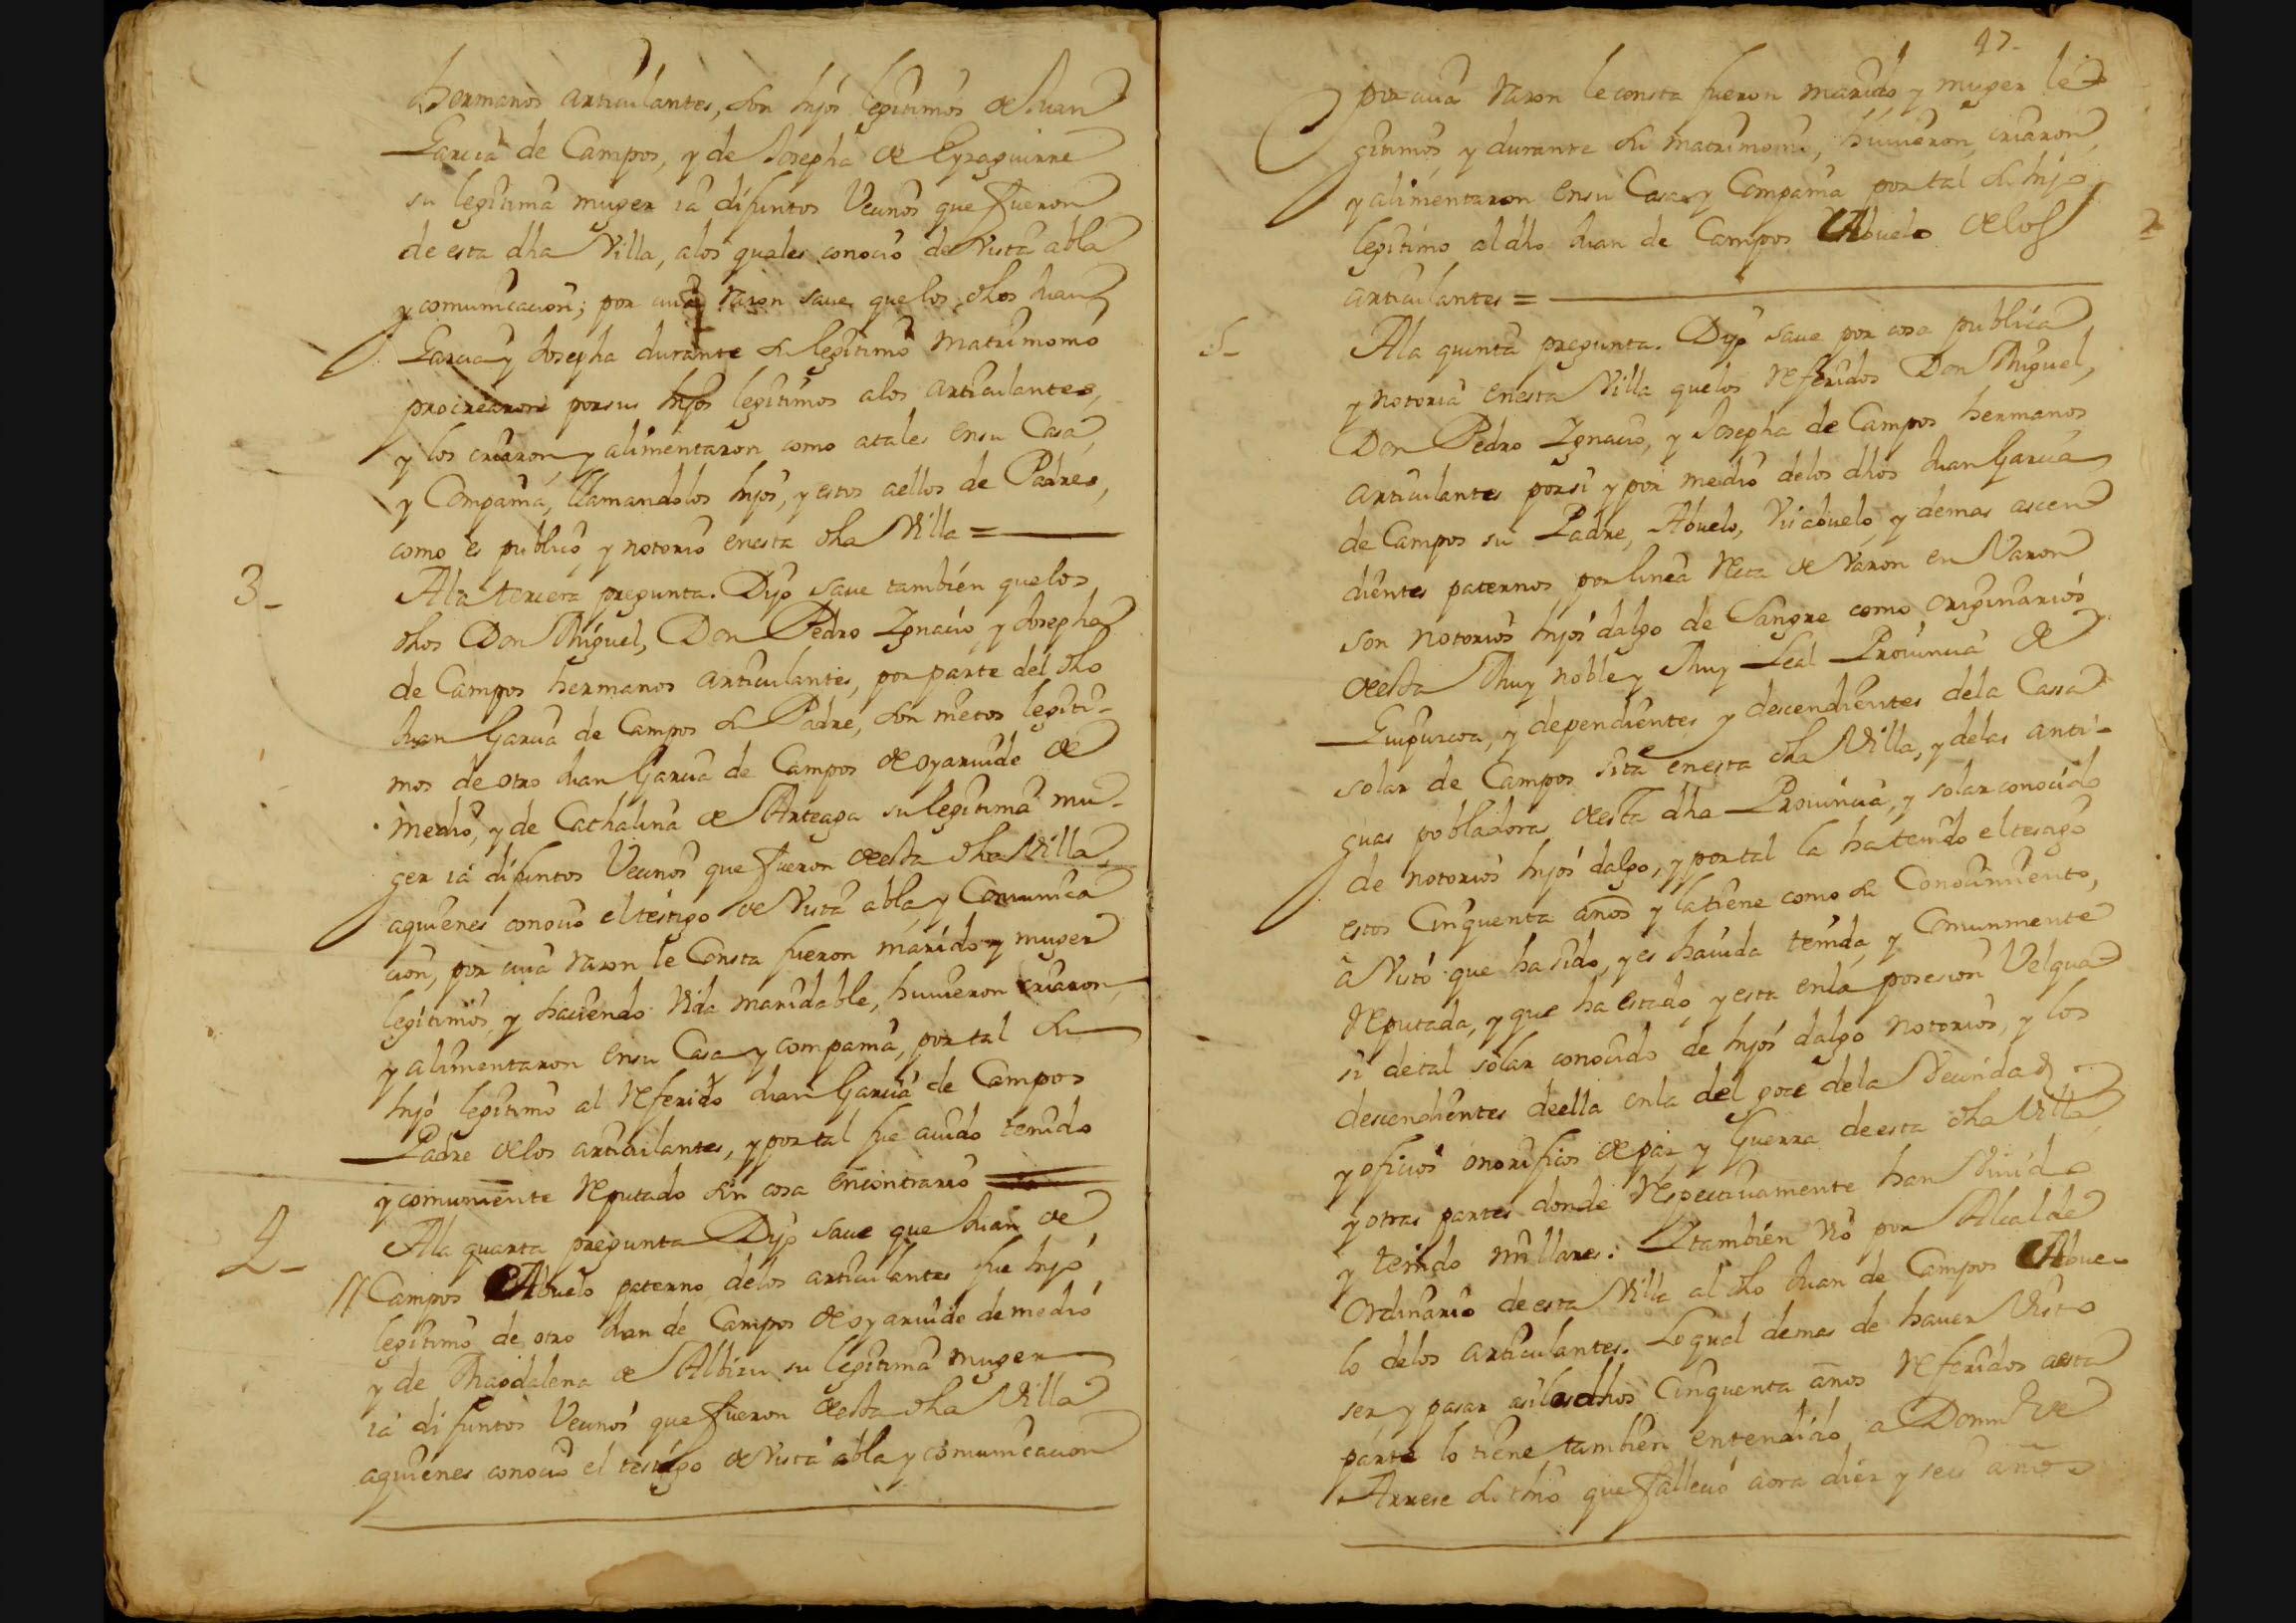 hermanos articulantes, son hijos legitimos de Juan
Garcia de Campos, y de Josepha de Eyzaguirre
su legitima muger ia difuntos Vecinos que fueron
de esta dha Villa, alos quales conocio de Vista abla
y comunicacion; por cuia razon save quelos dhos Juan
Garcia y Josepha durante su legitimo matrimonio
procrearon porsus hijos legitimos alos articulantes,
y los criaron y alimentaron como atales ensu Casa,
y Compania, llamandolos hijos, y estos aellos de Padres,
como es publico y notorio enesta dha Villa =
3_
Ala tercera pregunta. Dijo save también quelos
dhos Don Miguel, Don Pedro Ignacio, y Josepha
de Campos hermanos articulantes, por parte del dho
Juan Garcia de Campos su Padre, son nietos legiti-
mos de otro Juan Garcia de Campos de oyarvide de
medio, y de Cathalina de Arteaga su legitima mu-
ger ia difuntos Vecinos que fueron deesta dha Villa,
aquienes conocio el testigo de Vista abla y Comunica
cion, por cuia razon le Consta fueron marido y muger
legitimos, y haciendo Vida maridable, huvieron criaron,
y alimentaron ensu Casa y compania, por tal su
hijo legitimo al referido Juan Garcia de Campos
Padre delos articulantes, y por tal fue avido tenido
y comunmente reputado sin cosa encontrario
4_
Ala quarta pregunta Dijo save que Juan de
// Campos Abuelo paterno delos articulantes fue hijo
legitimo de otro Juan de Campos de oyarvide de medio
y de Magdalena de Albizu su legitima muger
ia difuntos Vecinos que fueron deesta dha Villa
aquienes conocio el testigo de Vista abla y comunicacion
47_
por cuia razon le consta fueron marido y muger le
gitimos y durante su matrimonio, huvieron, criaron,
y alimentaron ensu Casa y Compania por tal su hijo
legitimo al dho Juan de Campos Abuelo delos
articulantes =
5_
Ala quinta pregunta. Dijo save por cosa publica
y notoria enesta Villa quelos referidos Don Miguel,
Don Pedro Ignacio, y Josepha de Campos hermanos
articulantes porsi y por medio delos dhos Juan Garcia
de Campos su Padre, Abuelo, Visabuelo, y demas ascen
dientes paternos por linea recta de Varon en Varon
son notorios hijos dalgo de Sangre como originarios
deesta Muy noble y Muy Leal Provincia de
Guipuzcoa, y dependientes y descendientes dela Cassa
solar de Campos sita enesta dha Villa, y delas anti-
guas pobladoras deesta dha Provincia, y solar conocido
de notorios hijos dalgo, y por tal la ha tenido el testigo
estos Cinquenta años y la tiene como su Conocimiento,
â Visto que ha sido, y es havida tenida, y Comunmente
reputada, y que ha estado, y esta enla posesion Velqua
si de tal solar conocido de hijos dalgo notorios, y los
descendientes deella enla del goze dela Vecindad
y oficios onorificos de paz y Guerra de esta dha Villa
y otras partes donde respectivamente han Vivido
y tenido millares: Y también vio por Alcalde
Ordinario de esta Villa al dho Juan de Campos Abue-
lo delos articulantes. Lo qual demas de haver Visto
ser y pasar asilosdhos Cinquenta años referidos aesta
parte lo tiene tambien entendido a Domin de
Arrese su thio que fallecio aora diez y seis años